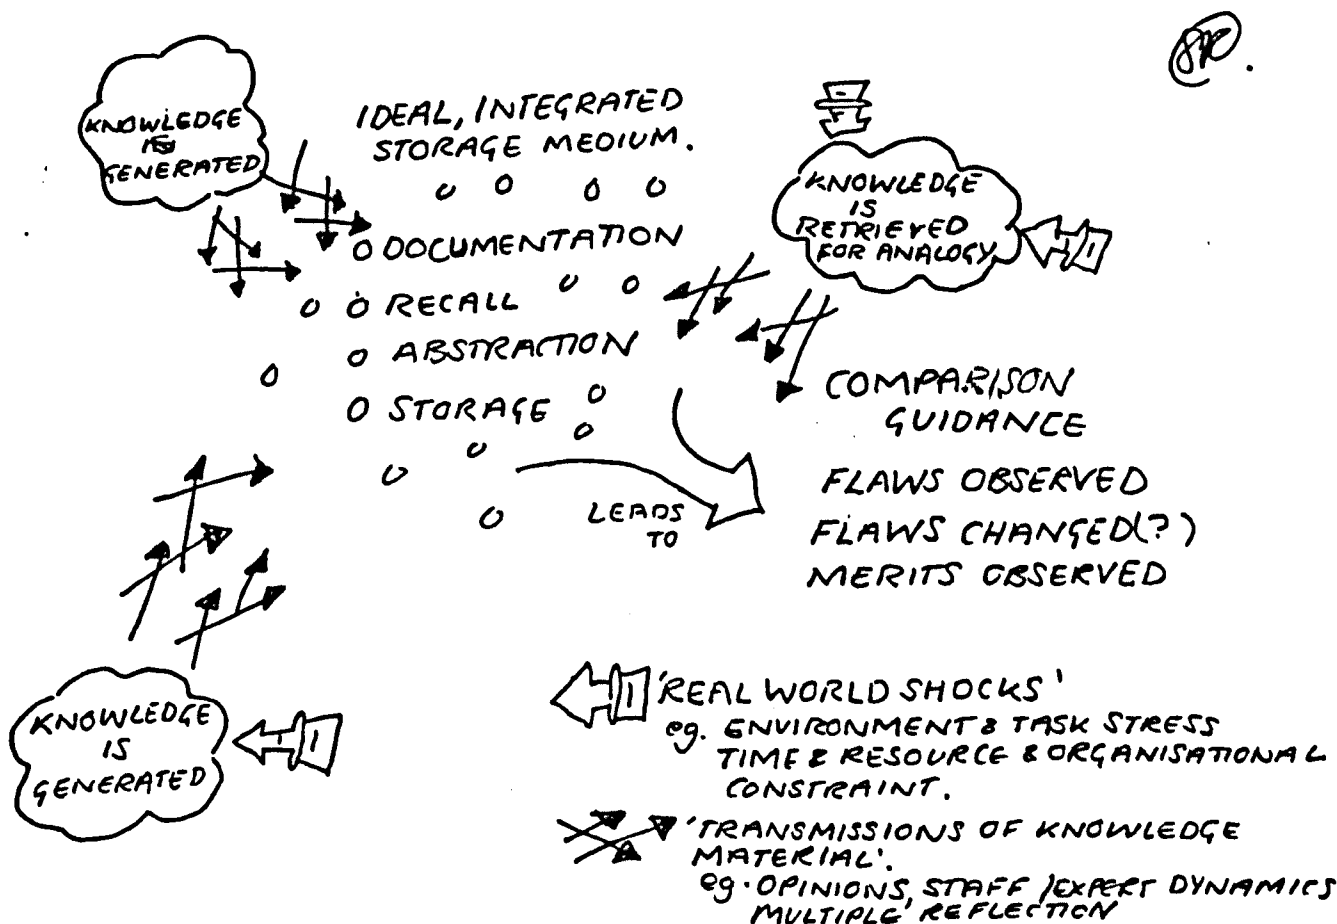 KNOWLEDGE
IS
GENERATED
IDEAL, INTEGRATED
STORAGE MEDIUM.
KNOWLEDGE
IS
RETRIEVED
FOR ANALOGY
DOCUMENTATION
RECALL
ABSTRACTION
STORAGE
COMPARISON
GUIDANCE
LEADS
TO
FLAWS OBSERVED
FLAWS CHANGED(?)
MERITS OBSERVED
KNOWLEDGE
IS
GENERATED
'REAL WORLD SHOCKS'
eg. ENVIRONMENT & TASK STRESS
TIME & RESOURCE & ORGANISATIONAL
CONSTRAINT.
'TRANSMISSIONS OF KNOWLEDGE
MATERIAL'.
eg. OPINIONS, STAFF/EXPERT DYNAMICS
MULTIPLE REFLECTION